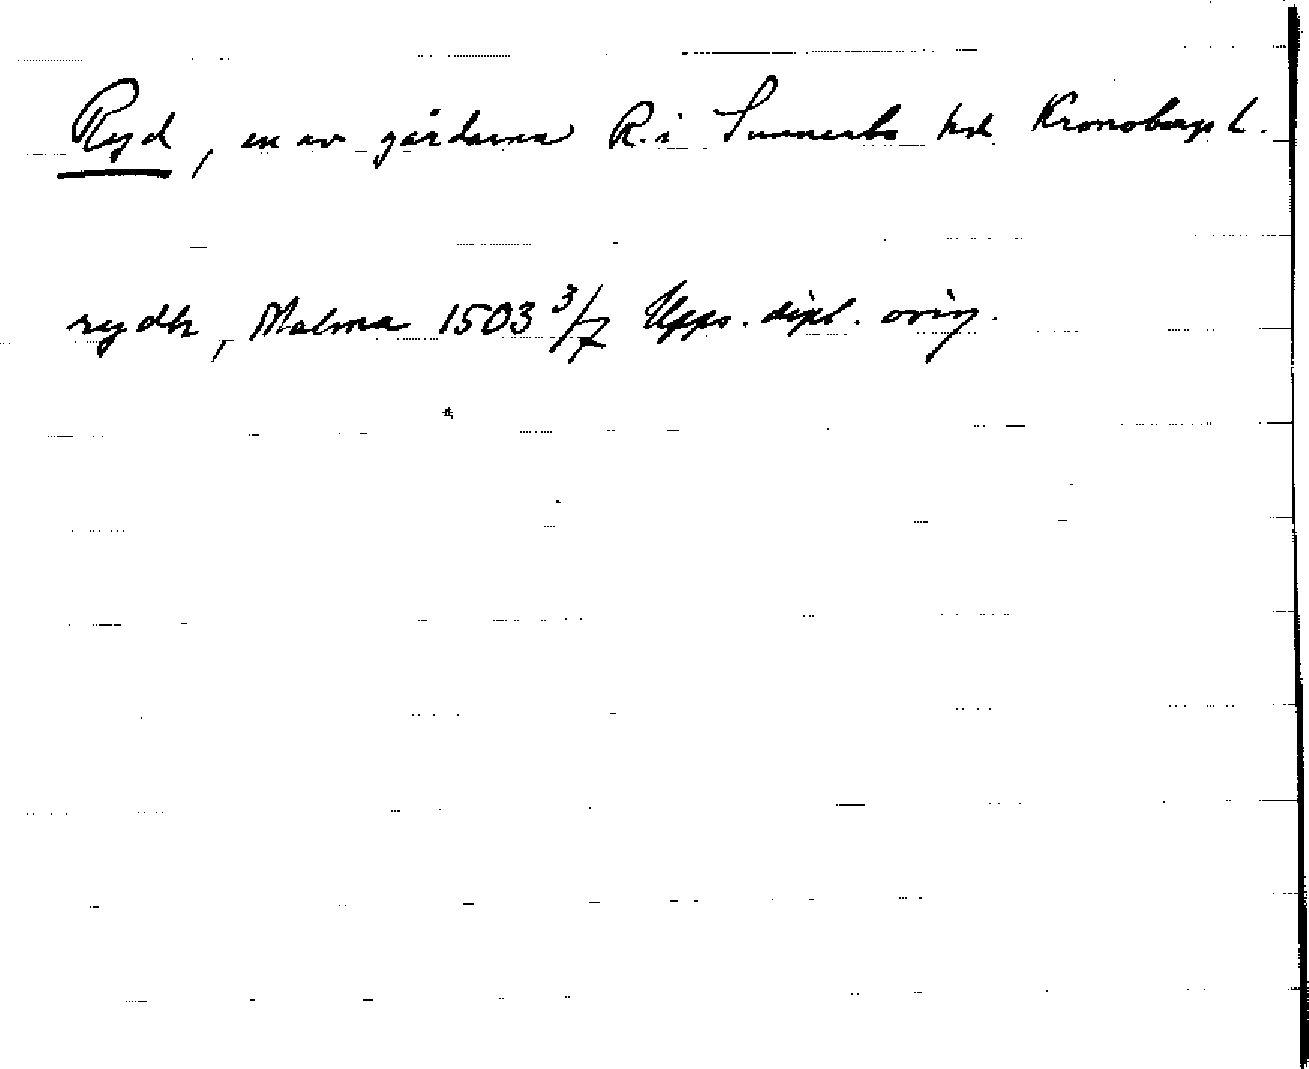 Ryd, en av gårdarna R. i Sunnerbo hd Kronobergs l.
rydh, Malma 1503 3/7 Upps. dipl. orig.